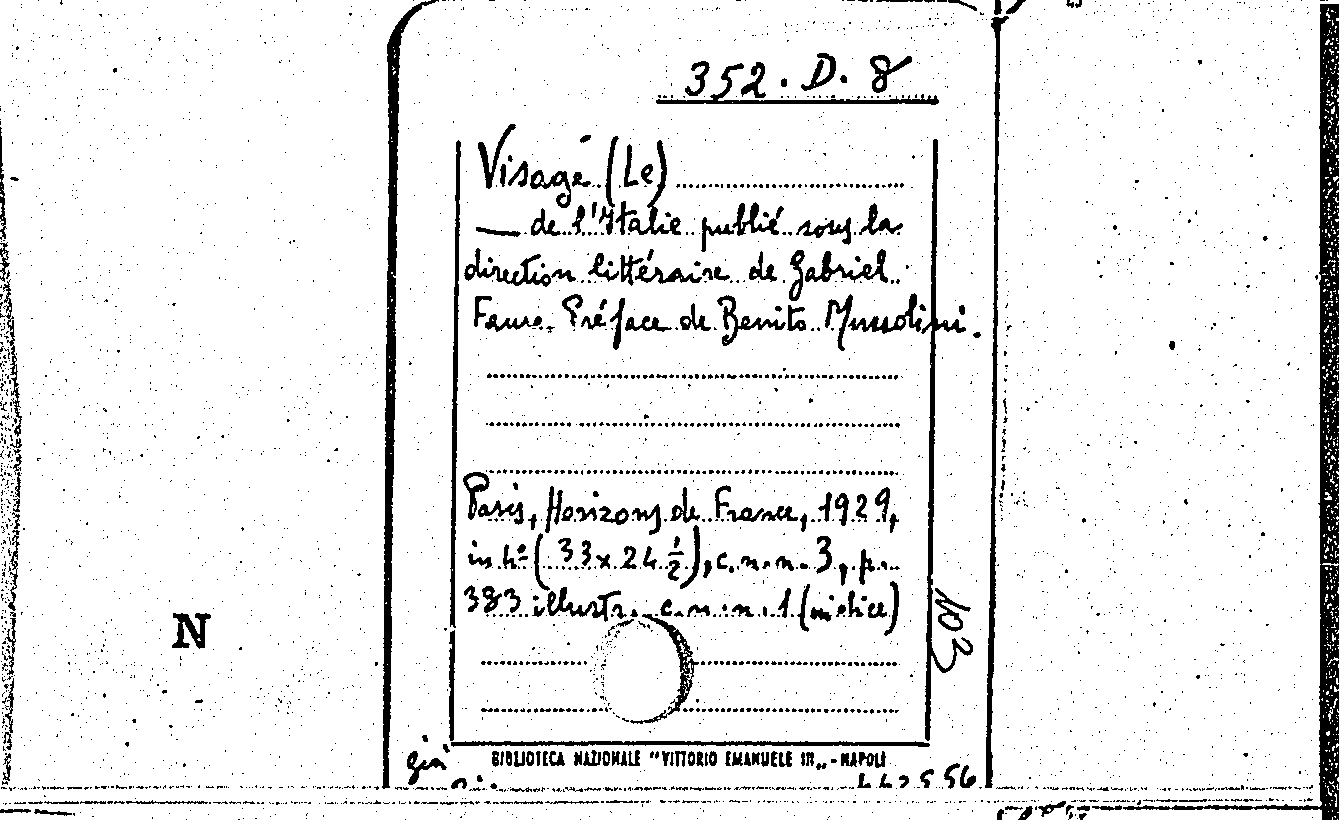 352. D. 8
Visage (Le)
— de l'Italie publié sous la
direction littéraire de Gabriel
Faure. Préface de Benito Mussolini.
Paris, Horizons de France, 1929,
in 4º (33x24 ½), c. n. n. 3, p.
383 illustr. c. n. n. 1 (indice)
103
N
già
BIBLIOTECA NAZIONALE "VITTORIO EMANUELE III„ - NAPOLI
442556